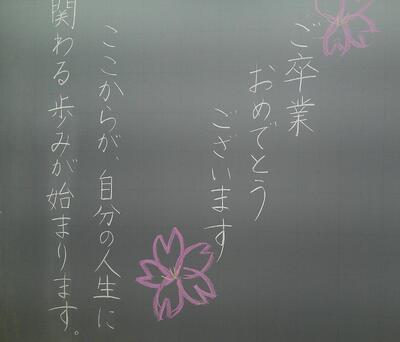 ご卒業
おめでとう
ございます
ここからが、自分の人生に
関わる歩みが始まります。